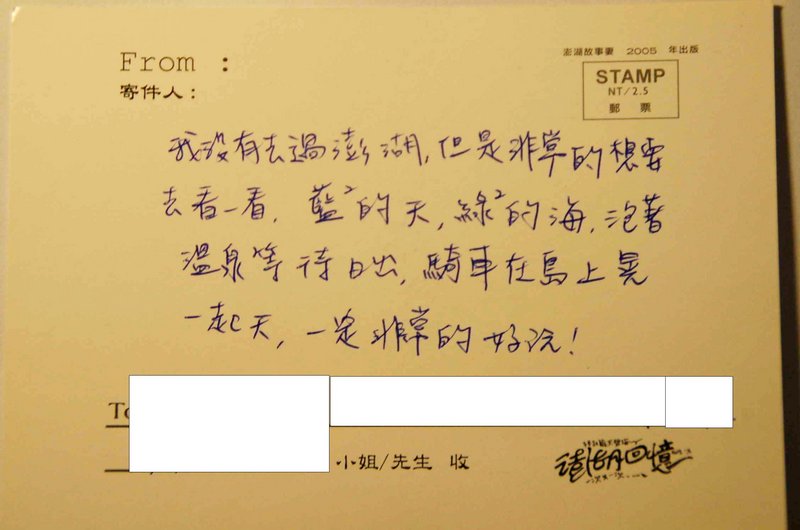 From :
澎湖故事妻 2005 年出版
寄件人:
STAMP
NT/2.5
郵 票
我沒有去過澎湖,但是非常的想要
去看一看, 藍²的天, 綠²的海, 泡著
溫泉等待日出, 騎車在島上晃
一起天, 一定非常的好玩!
小姐/先生 收
澎湖回憶